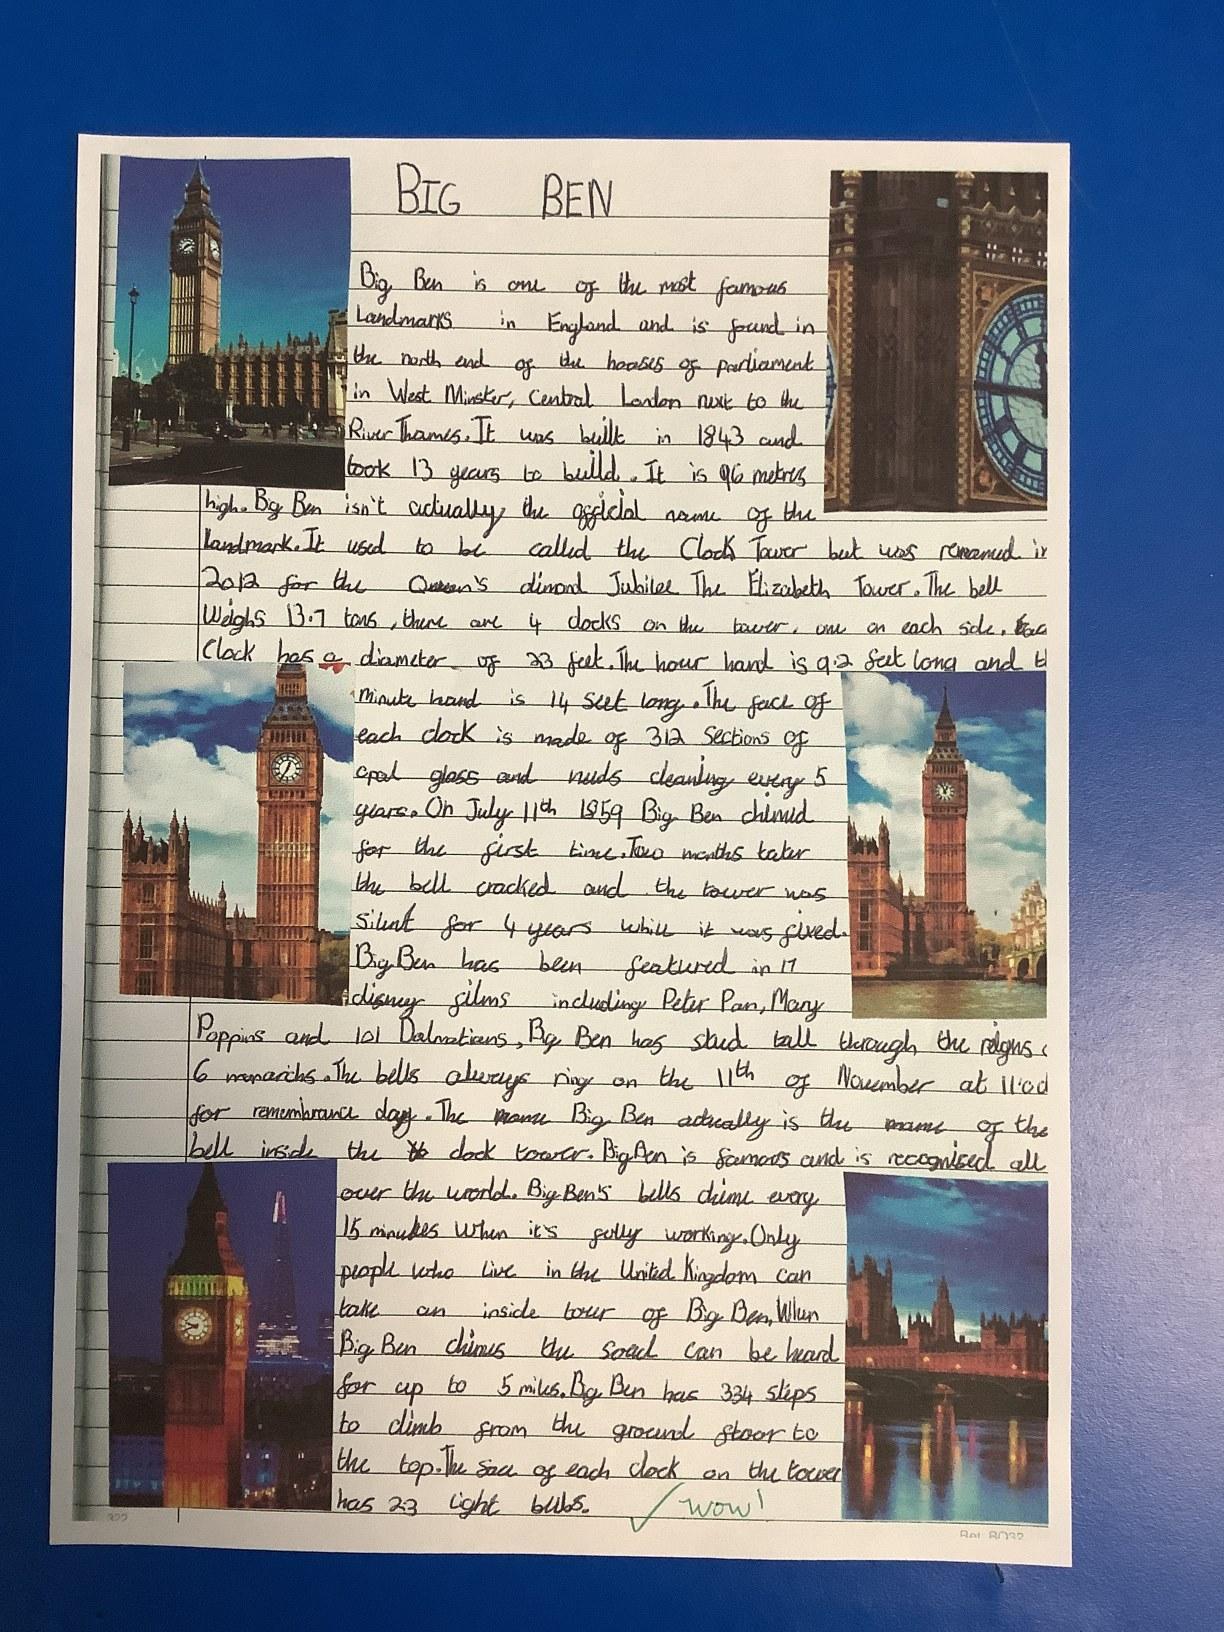 BIG BEN
Big Ben is one of the most famous
Landmarks in England and is found in
the north end of the houses of parliament
in West Minster, Central London next to the
River Thames. It was built in 1843 and
took 13 years to build. It is 96 metres
high. Big Ben isn't actually the official name of the
landmark. It used to be called the Clock Tower but was renamed in
2012 for the Queen's dimond Jubilee The Elizabeth Tower. The bell
Weighs 13.7 tons, there are 4 clocks on the tower, one on each side.
Clock has a diameter of 23 feet. The hour hand is 9.2 feet long and
minute hand is 14 feet long. The face of
each clock is made of 312 Sections of
opal glass and needs cleaning every 5
years. On July 11th 1859 Big Ben chimed
for the first time. Two months later
the bell cracked and the tower was
silent for 4 years while it was fixed.
Big Ben has been featured in 17
disney films including Peter Pan, Mary
Poppins and 101 Dalmatians, Big Ben has stud tall through the reigns
6 monarchs. The bells always ring on the 11th of November at
for remembrance day. The name Big Ben actually is the name of the
bell inside the clock tower. Big Ben is famous and is recognised all
over the world. Big Ben's bells chime every
15 minutes when it's fully working. Only
people who live in the United Kingdom can
take an inside tour of Big Ben, When
Big Ben chimes the soud can be heard
for up to 5 miles. Big Ben has 334 steps
to climb from the ground floor to
the top. The face of each clock on the tower
has 23 light bulbs. wow!